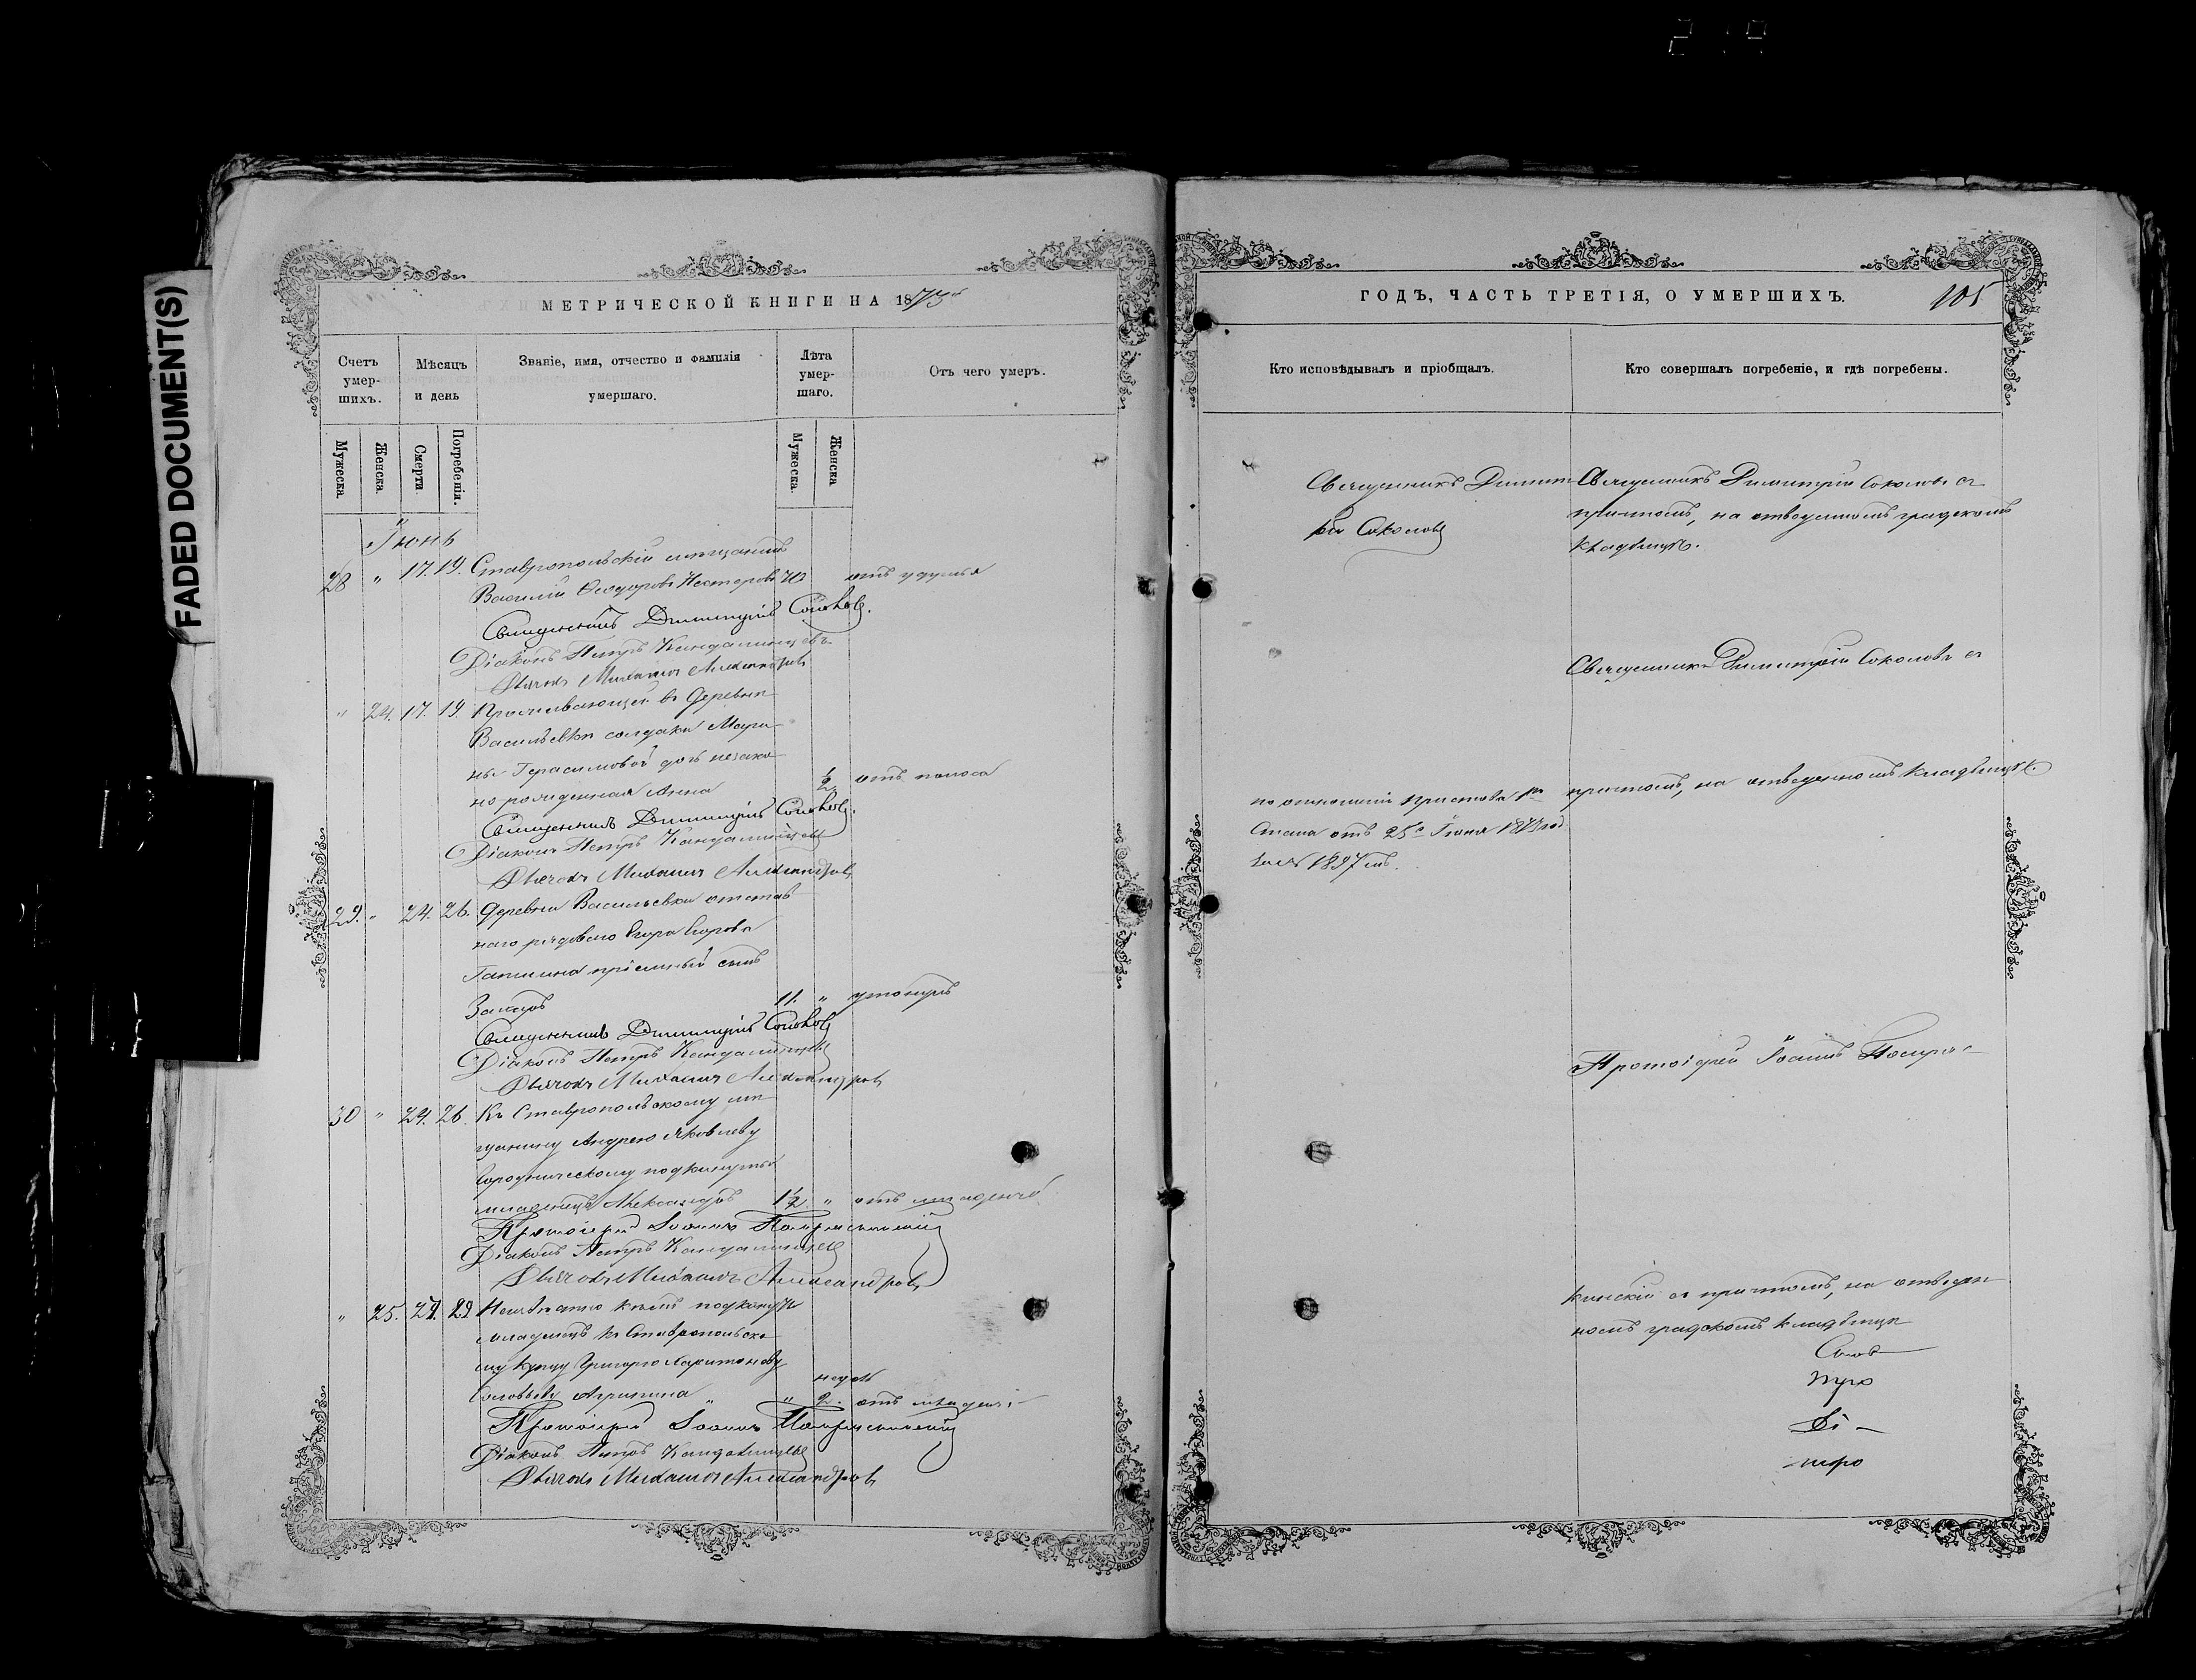 FADED DOCUMENT(S)
МЕТРИЧЕСКОЙ КНИГИ НА 1873й
Счетъ умер-шихъ.
Мѣсяцъ и день
Званіе, имя, отчество и фамилія умершаго.
Лѣта умер-шаго.
Отъ чего умеръ.
Мужеска
Женска.
Смерти
Погребенія.
Мужеска.
Женска
Іюнь
28 " 17. 19. Ставропольскій мѣщанинъ
Василій Ѳеодоровъ Нестеровъ 70 отъ удушья
Священникъ Димитрій Соколовъ.
Діаконъ Петръ Кандалинцевъ
Дьячокъ Михаилъ Александровъ
" 24. 17. 19. Проживающей въ деревнѣ
Васильевкѣ солдатки Мари
ны Герасимовой дочь незако
но рожденная Анна ½ отъ поноса
Священникъ Димитрій Соколовъ.
Діаконъ Петръ Кандалинцевъ
Дьячокъ Михаилъ Александровъ
29. " 24. 26. Деревни Васильевки отстав
наго рядоваго Егора Егорова
пріемный сынъ
Захаръ 11. " утонулъ
Священникъ Димитрій Соколовъ
Діаконъ Петръ Кандалинцевъ
Дьячокъ Михаилъ Александровъ
30 " 24. 26. Къ Ставропольскому мѣ
щанину Андрею Яковлеву
Городническому подкинутый
младенецъ Александръ 1½ " отъ младенче
Протоіерей Іоаннъ
Діаконъ Петръ Кандалинцевъ
Дьячокъ Михаилъ Александровъ
" 25. 27. 29. Неизвѣстно кѣмъ подкинутъ
младенецъ къ Ставропольско
му купцу Григорію Харитонову
Соловьеву Агрипина " недѣль 2. отъ младен
Протоіерей Іоаннъ
Діаконъ Петръ Кандалинцевъ
Дьячокъ Михаилъ Александровъ
ГОДЪ, ЧАСТЬ ТРЕТІЯ, О УМЕРШИХЪ.
105
Кто исповѣдывалъ и пріобщалъ.
Кто совершалъ погребеніе, и гдѣ погребены.
Священникъ Димит
рій Соколовъ
Священникъ Димитрій Соколовъ съ
причтомъ, на отведенномъ градскомъ
кладбищѣ.
Священникъ Димитрій Соколовъ съ
причтомъ, на отведенномъ кладбищѣ.
по отношенію пристава 1го
Стана отъ 25го Іюня 1873 год
за № 1897мъ.
Протоіерей Іоаннъ
съ причтомъ, на отведен
номъ градскомъ кладбищѣ